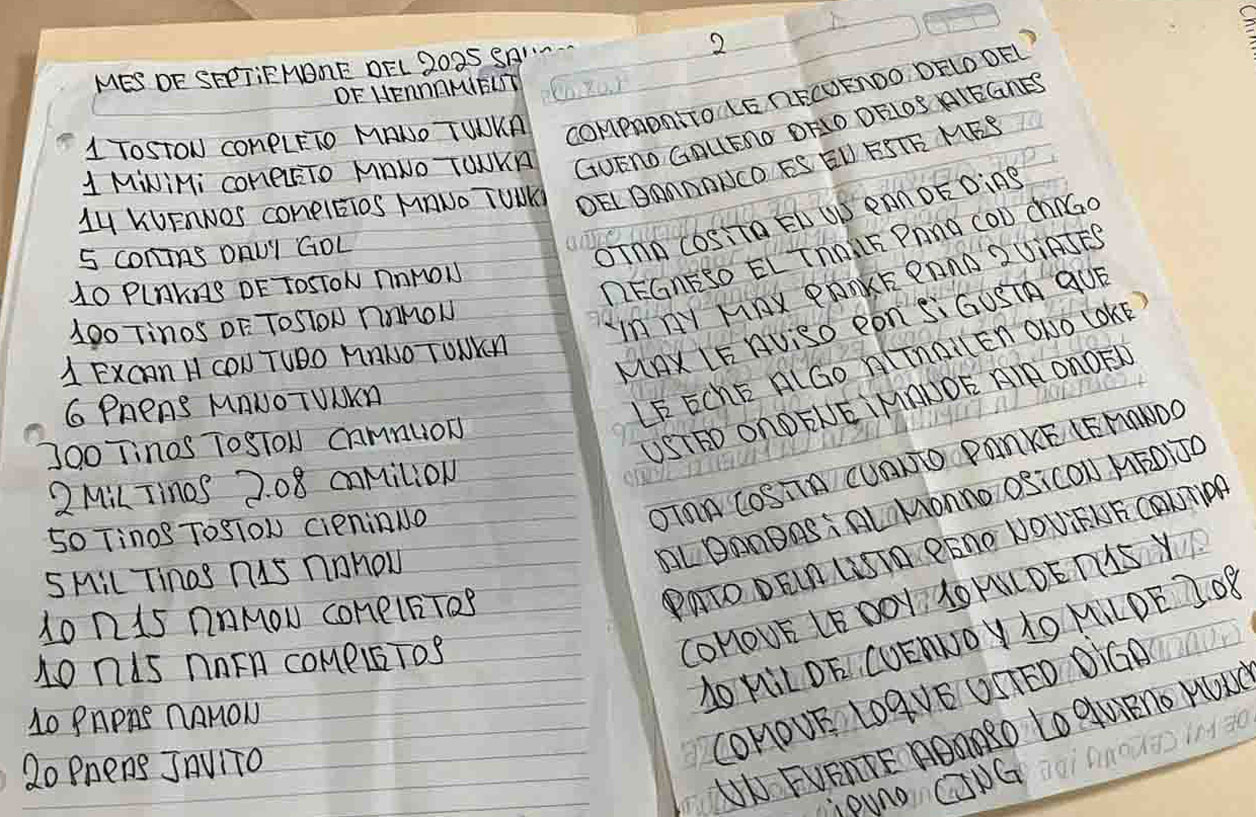 MES DE SEPTIEMBRE DEL 2025
DE HERRAMIENT
1 TOSTON COMPLETO MANO TUNKA
1 MINIMI COMPLETO MANO TUNKA
14 KUERNOS COMPLETOS MANO TUNKA
5 CORTAS DAVY GOL
10 PLAKAS DE TOSTON RAMON
100 TIROS DE TOSTON RAMON
1 EXCAR H CON TUDO MANO TUNKA
6 PAPAS MANO TUNKA
300 TIROS TOSTON CAMALION
2 MIL TIROS 3.08 CAMILION
50 TIROS TOSTON CIPRIANO
5 MIL TIROS R15 RAMON
10 R15 RAMON COMPLETOS
10 R15 RAFA COMPLETOS
10 PAPAS RAMON
20 PAPAS JAVITO
2
COMPADRITO LE RECUERDO DELO DEL
GUERO GALLERO DELO DELOS ALEGRES
DEL BARRANCO ES EN ESTE MES
OTRA COSITA EN UN PAR DE DIAS
REGRESO EL TRAILE PARA CON CHAGO
YA AY MAX PARKE PARA 2 VIAJES
MAX LE AVISO POR SI GUSTA QUE
LE ECHE ALGO AL TRAILER ONO LOKE
USTED ORDENE I MANDE AIA ORDEN
OTRA COSITA CUANTO PARKE LE MANDO
AL BARBAS I AL MORRO OSICON MEDIJO
PATO DELA LISTA PERO NOVIENE CANTIDA
COMOVE LE DOY 10 MIL DE R15 Y
10 MIL DE CUERNO Y 10 MIL DE 3.08
COMOVE LOQUE USTED DIGA
UN FUERTE ABRASO LO QUIERO MUNCH
CJNG